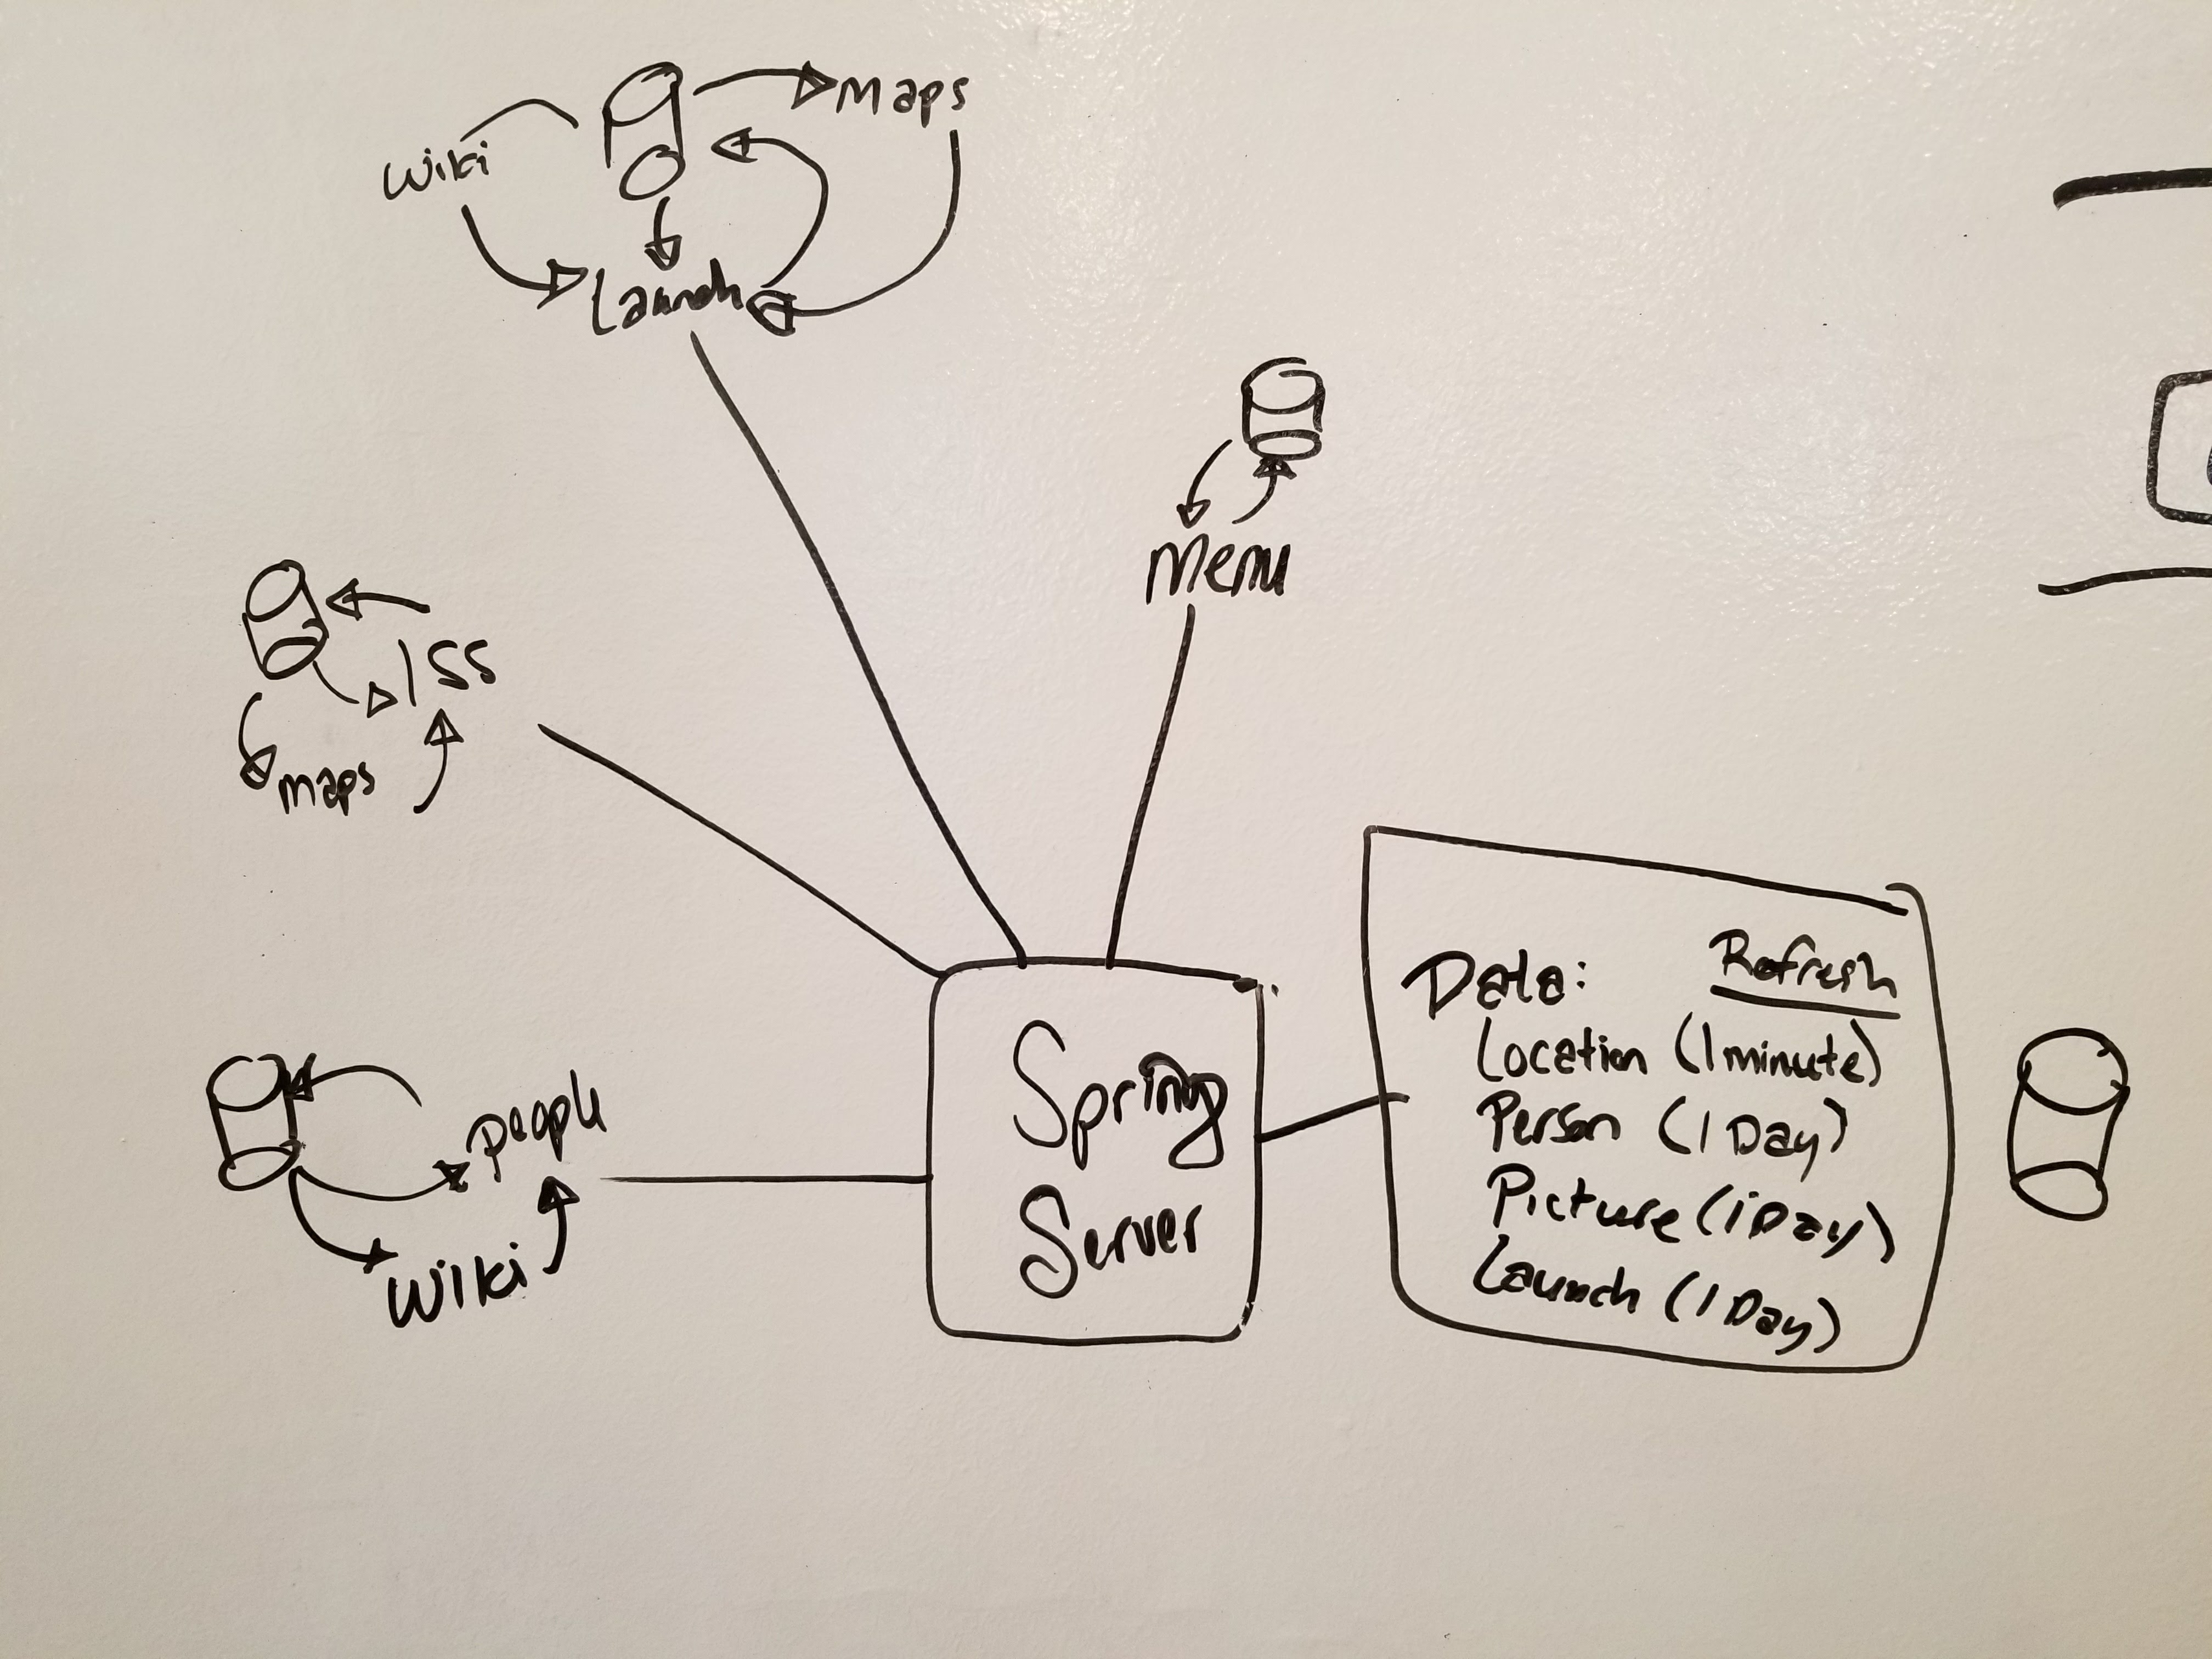 maps
Wiki
Launch
Menu
ISS
maps
people
Wiki
Spring
Server
Data: Refresh
Location (1 minute)
Person (1 Day)
Picture (1 Day)
Launch (1 Day)